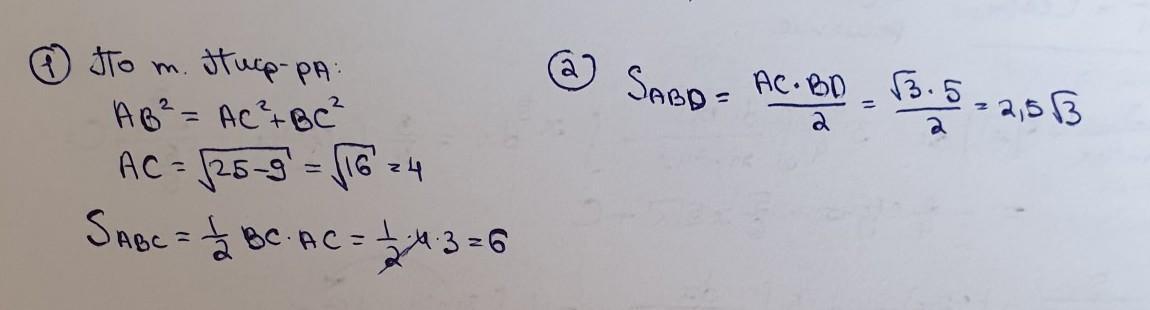 ① По т. Пиф-ра:
AB² = AC² + BC²
AC = √25-9 = √16 = 4
S_ABC = 1/2 BC · AC = 1/2 · 4 · 3 = 6
② S_ABD = AC · BD / 2 = √3 · 5 / 2 = 2,5√3